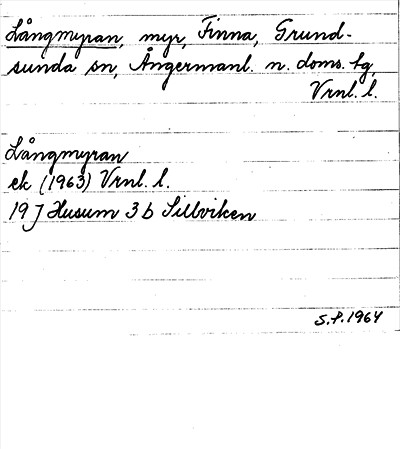 Långmyran, myr, Finna, Grund-
sunda sn, Ångermanl. n. doms. tg,
Vrnl. l.
Långmyran
ek (1963) Vrnl. l.
19 J Husum 3 b Sillviken
S.P. 1964